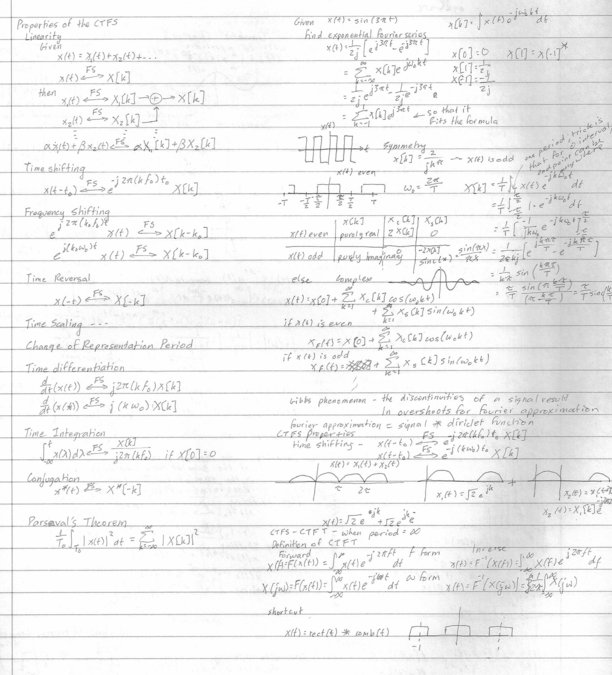 Properties of the CTFS
Linearity
Given
x(t) = x₁(t) + x₂(t) + ...
x(t) ←FS→ X[k]
then
x₁(t) ←FS→ X₁[k] → ⊕ → X[k]
x₂(t) ←FS→ X₂[k]
αx₁(t) + βx₂(t) ←FS→ αX₁[k] + βX₂[k]
Time shifting
x(t-t₀) ←FS→ e^{-j2π(kf₀)t₀} X[k]
Frequency shifting
e^{j2π(k₀f₀)t} x(t) ←FS→ X[k-k₀]
e^{j(k₀ω₀)t} x(t) ←FS→ X[k-k₀]
Time Reversal
x(-t) ←FS→ X[-k]
Time Scaling ---
Change of Representation Period
Time differentiation
d/dt (x(t)) ←FS→ j2π(kf₀)X[k]
d/dt (x(t)) ←FS→ j(kω₀)X[k]
Time Integration
∫_{-∞}^{t} x(λ)dλ ←FS→ X[k]/(j2π(kf₀)) if X[0]=0
Conjugation
x*(t) ←FS→ X*[-k]
Parseval's Theorem
1/T₀ ∫_{T₀} |x(t)|² dt = Σ_{k=-∞}^{∞} |X[k]|²
Given x(t) = sin(3πt)
find exponential fourier series
x(t) = 1/2j [e^{j3πt} - e^{-j3πt}]
= Σ_{k=-∞}^{∞} X[k] e^{jω₀kt}
= 1/2j e^{j3πt} - 1/2j e^{-j3πt}
= Σ X[k] e^{j3πt} ← So that it
fits the formula
x[k] = ∫ x(t) e^{-jω₀kt} dt
x[0] = 0 x[1] = x[-1]*
x[1] = 1/2j
x[-1] = -1/2j
x(t)
t
Symmetry
x[k] = 2/jkπ ~ x(t) is odd
one period trick is
that for
x(t) even
-T -T/2 T/2 T
ω₀ = 2π/T
X[k] = 1/T ∫ x(t) e^{-jkω₀t} dt
= 1/T ∫ 1·e^{-jkω₀t} dt
x[k] X_c[k] X_s[k]
x(t) even purely real 2X[k] 0
x(t) odd purely imaginary 0 -2X[k]
sinc(x) = sin(πx)/πx
else complex
x(t) = x[0] + Σ_{k=1}^{∞} X_c[k] cos(ω₀kt)
+ Σ_{k=1}^{∞} X_s[k] sin(ω₀kt)
if x(t) is even
x_F(t) = X[0] + Σ_{k=1}^{∞} X_c[k] cos(ω₀kt)
if x(t) is odd
x_F(t) = + Σ_{k=1}^{∞} X_s[k] sin(ω₀kt)
Gibbs phenomenon - the discontinuities of a signal result
in overshoots for fourier approximation
fourier approximation = signal * diriclet function
CTFS Properties
time shifting - x(t-t₀) ←FS→ e^{-j2π(kf₀)t₀} X[k]
x(t-t₀) ←FS→ e^{-j(kω₀)t₀} X[k]
x(t) = x₁(t) + x₂(t)
π 2π
+
CTFS - CTFT - when period = ∞
Definition of CTFT
Forward
X(f) = F(x(t)) = ∫_{-∞}^{∞} x(t) e^{-j2πft} dt f form
X(jω) = F(x(t)) = ∫_{-∞}^{∞} x(t) e^{-jωt} dt ω form
Inverse
x(t) = F⁻¹(X(f)) = ∫_{-∞}^{∞} X(f) e^{j2πft} df
shortcut
x(t) = rect(t) * comb(t)
-1 1